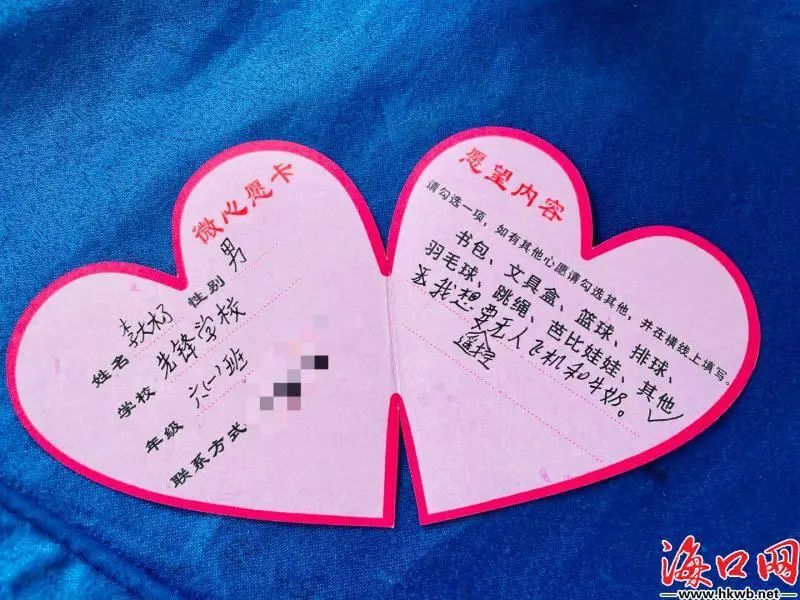 微心愿卡
姓名 性别 男
学校 先锋学校
年级 六(一)班
联系方式
愿望内容
请勾选一项，如有其他心愿请勾选其他，并在横线上填写。
书包、文具盒、篮球、排球、
羽毛球、跳绳、芭比娃娃、其他✓
我想要无人飞机和牛奶。
遥控
海口网
www.hkwb.net